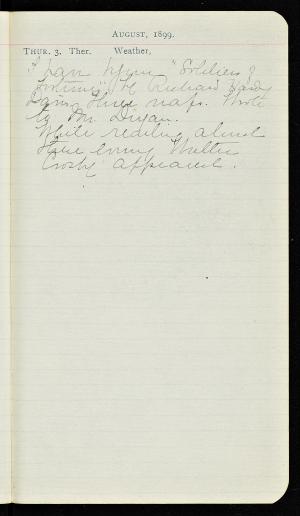 August, 1899.
Thur. 3. Ther. Weather,
"Soldiers of
Fortune" by Richard Harding
Davis. Three naps. Wrote
to Mr.
While reading aloud
Walter
Crosby appeared.